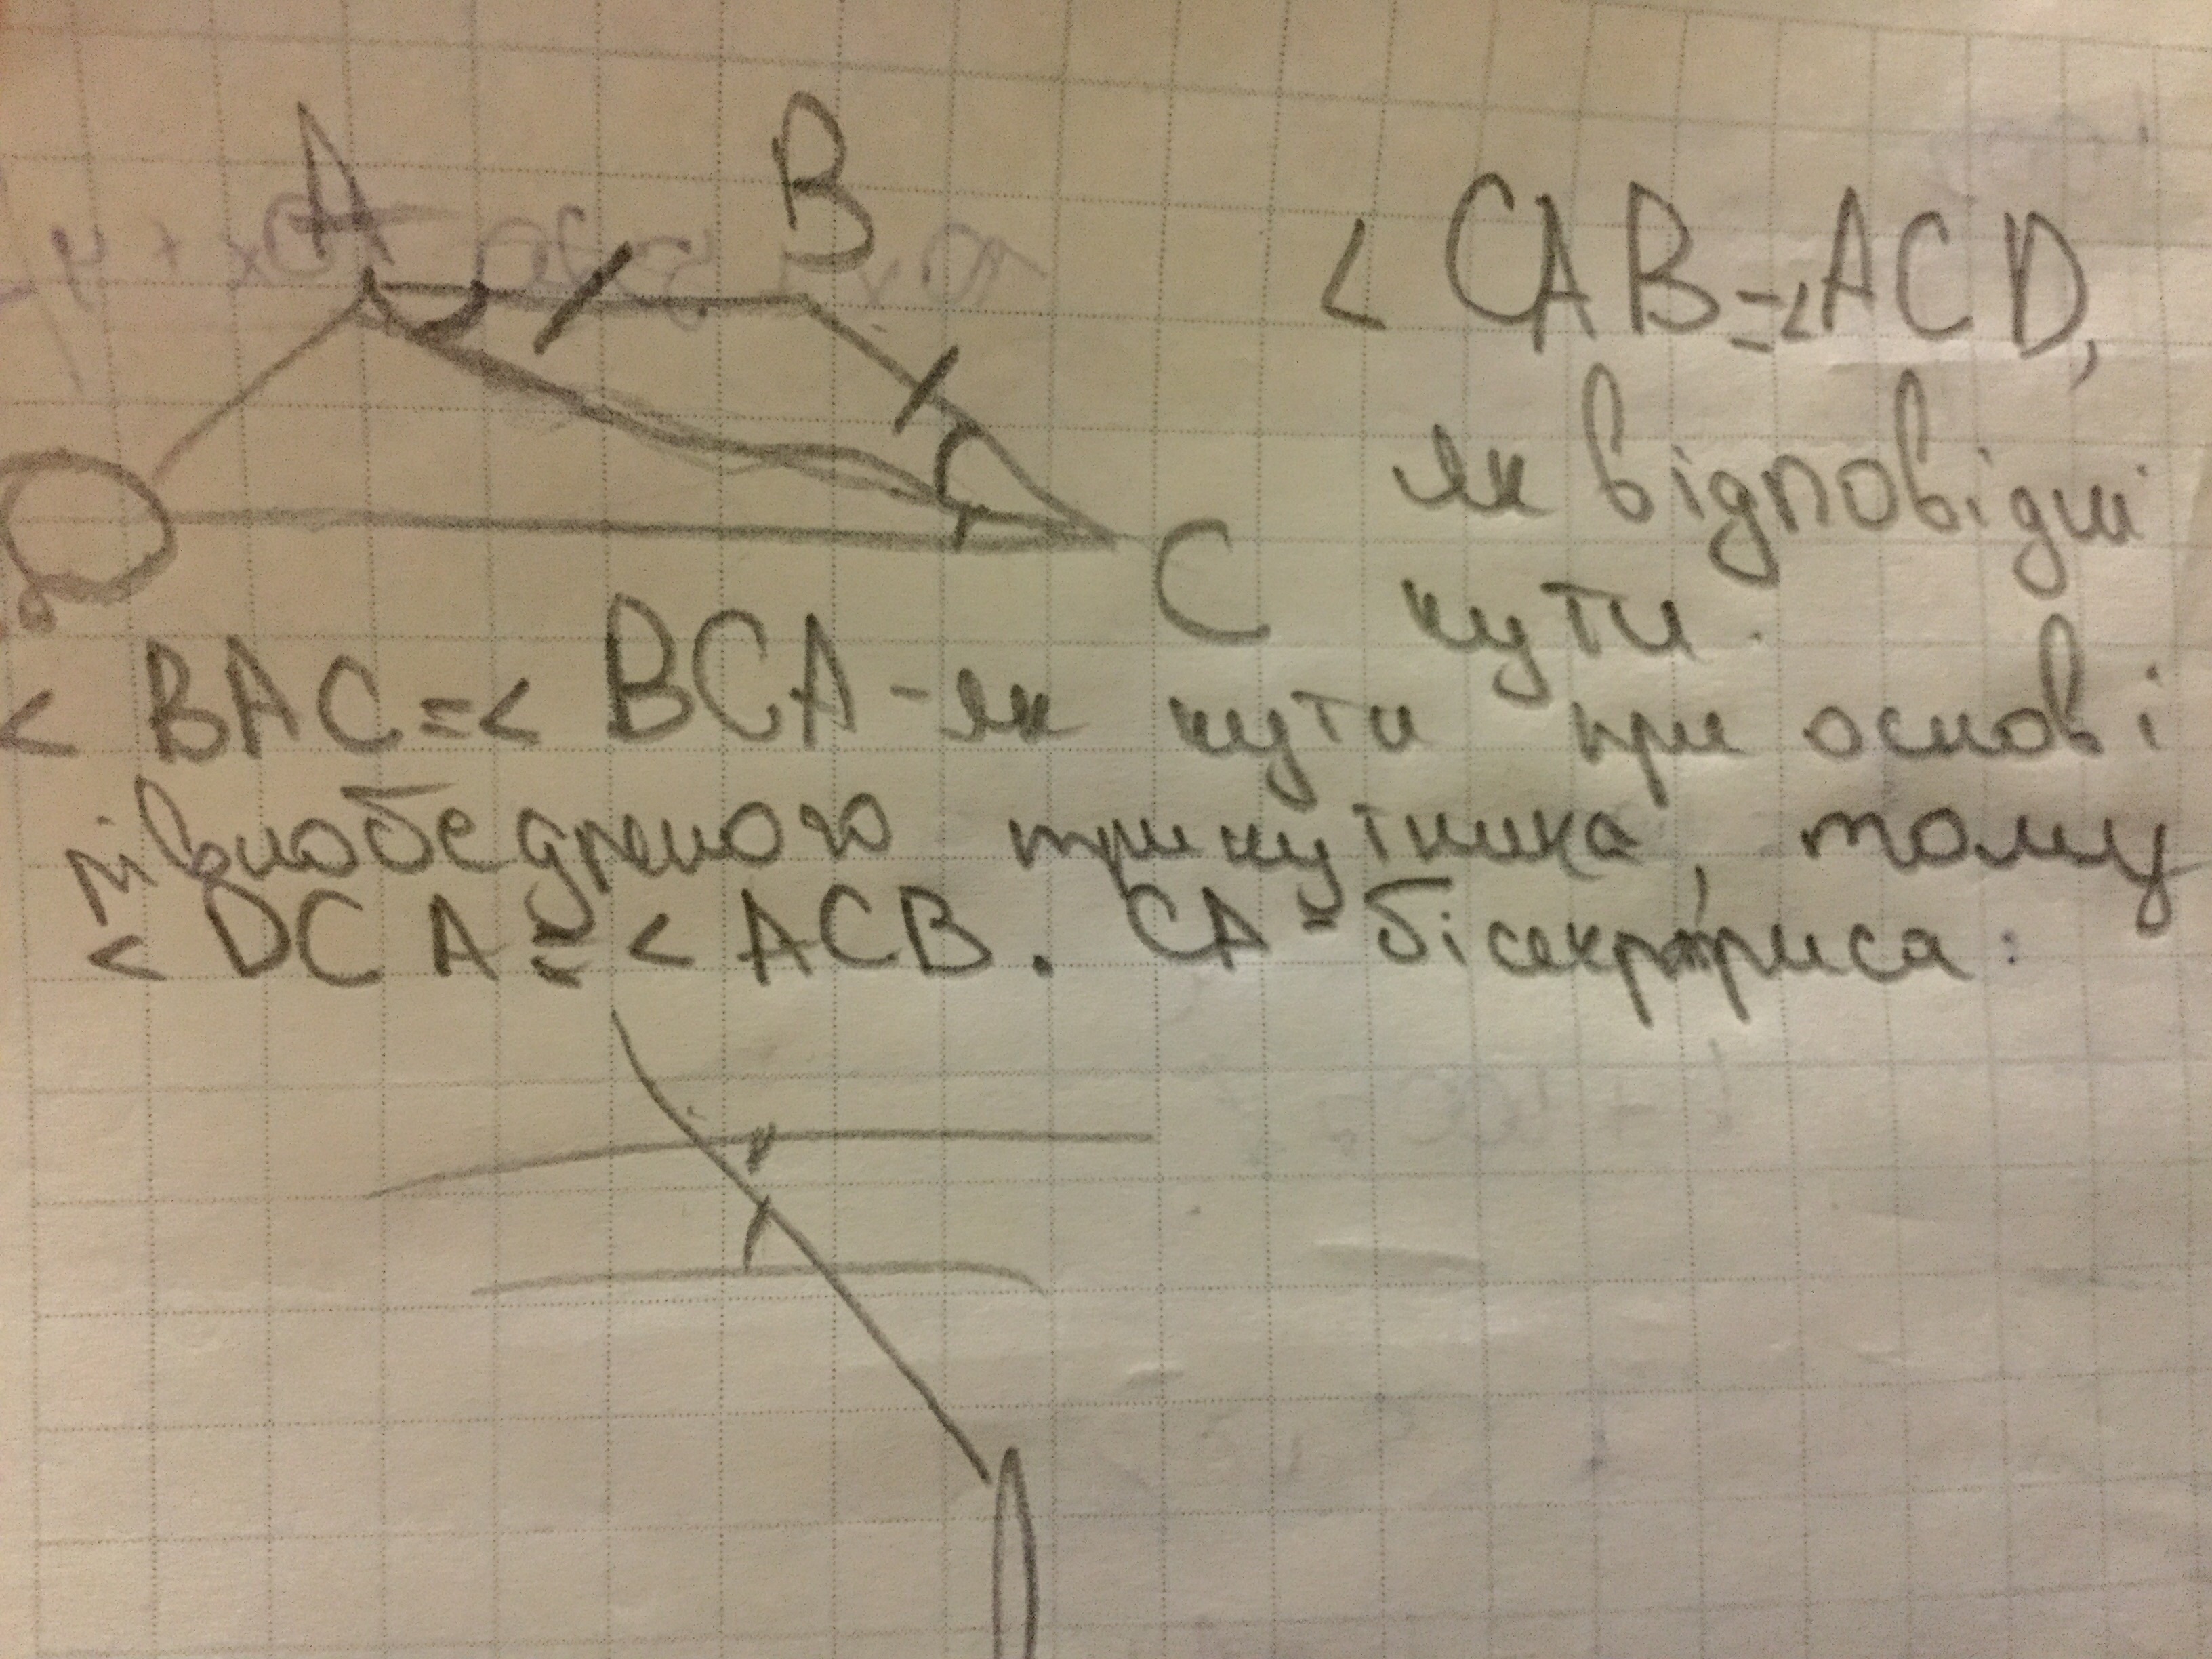 A B
< CAB = < ACD,
як відповідні
C кути.
< BAC = < BCA - як кути при основі
рівнобедреного трикутника, тому
< DCA = < ACB. CA - бісектриса.